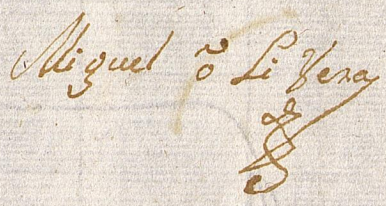 Miguel õ Li Vera